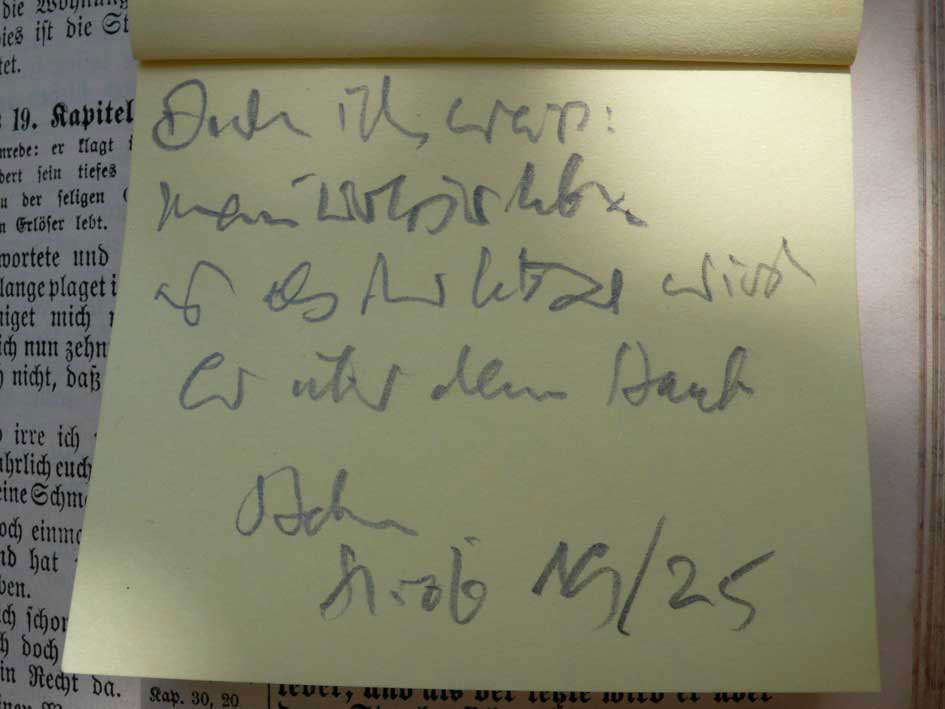 die Wohnung
ies ist die St
tet.
19. Kapitel
nrede: er klagt
dert sein tiefes
u der seligen
n Erlöser lebt.
wortete und
lange plaget i
niget mich
ich nun zehn
h nicht, daß
irre ich
ahrlich euch
eine Schme
och einma
nd hat
ben.
ch schon
h doch
in Recht da.
Kap. 30, 20
leber, und als der letzte wird er über
Doch ich weiss:
mein Erlöser lebt
als der letzte wird
Er über dem Staub
stehn
Hiob 19/25